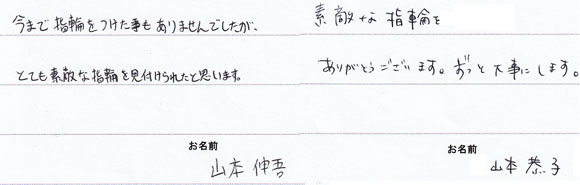 今まで指輪をつけた事もありませんでしたが、
とても素敵な指輪を見付けられたと思います。
お名前
山本 伸吾
素敵な指輪を
ありがとうございます。ずっと大事にします。
お名前
山本 恭子